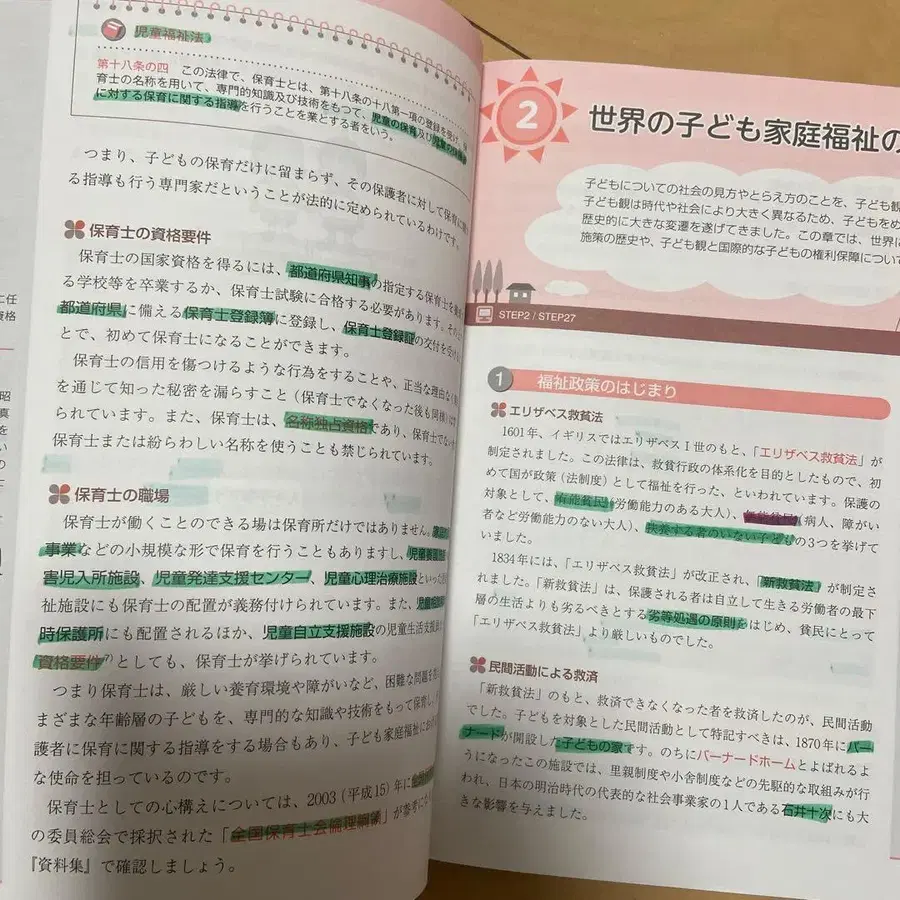 児童福祉法
第十八条の四　この法律で、保育士とは、第十八条の十八第一項の登録を受け、保
育士の名称を用いて、専門的知識及び技術をもつて、児童の保育及び児童の保護者
に対する保育に関する指導を行うことを業とする者をいう。
つまり、子どもの保育だけに留まらず、その保護者に対して保育に関す
る指導も行う専門家だということが法的に定められているわけです。
保育士の資格要件
保育士の国家資格を得るには、都道府県知事の指定する保育士を養成す
る学校等を卒業するか、保育士試験に合格する必要があります。その上
都道府県に備える保育士登録簿に登録し、保育士登録証の交付を受ける
とで、初めて保育士になることができます。
保育士の信用を傷つけるような行為をすることや、正当な理由なく
を通じて知った秘密を漏らすこと（保育士でなくなった後も同様）は
られています。また、保育士は、名称独占資格であり、保育士でない
保育士または紛らわしい名称を使うことも禁じられています。
保育士の職場
保育士が働くことのできる場は保育所だけではありません。
事業などの小規模な形で保育を行うこともありますし、児童養護施
害児入所施設、児童発達支援センター、児童心理治療施設といった
祉施設にも保育士の配置が義務付けられています。また、児童
時保護所にも配置されるほか、児童自立支援施設の児童生活支援
資格要件としても、保育士が挙げられています。
つまり保育士は、厳しい養育環境や障がいなど、困難な問題を
まざまな年齢層の子どもを、専門的な知識や技術をもって保育し、
護者に保育に関する指導をする場合もあり、子ども家庭福祉に
な使命を担っているのです。
保育士としての心構えについては、2003（平成15）年に
の委員総会で採択された「全国保育士会倫理綱領」が参考に
『資料集』で確認しましょう。
に任
資格
昭
真
を
い
の
2
世界の子ども家庭福祉の
子どもについての社会の見方やとらえ方のことを、子ども観
子ども観は時代や社会により大きく異なるため、子どもをめ
歴史的に大きな変遷を遂げてきました。この章では、世界に
施策の歴史や、子ども観と国際的な子どもの権利保障につい
STEP2 / STEP27
1 福祉政策のはじまり
エリザベス救貧法
1601年、イギリスではエリザベスⅠ世のもと、「エリザベス救貧法」が
制定されました。この法律は、救貧行政の体系化を目的としたもので、初
めて国が政策（法制度）として福祉を行った、といわれています。保護の
対象として、有能貧民（労働能力のある大人）、無能貧民（病人、障がい
者など労働能力のない大人）、扶養する者のいない子どもの3つを挙げて
いました。
1834年には、「エリザベス救貧法」が改正され、「新救貧法」が制定さ
れました。「新救貧法」は、保護される者は自立して生きる労働者の最下
層の生活よりも劣るべきとする劣等処遇の原則をはじめ、貧民にとって
「エリザベス救貧法」より厳しいものでした。
民間活動による救済
「新救貧法」のもと、救済できなくなった者を救済したのが、民間活動
でした。子どもを対象とした民間活動として特記すべきは、1870年にバー
ナードが開設した子どもの家です。のちにバーナードホームとよばれるよ
うになったこの施設では、里親制度や小舎制度などの先駆的な取組みが行
われ、日本の明治時代の代表的な社会事業家の1人である石井十次にも大
きな影響を与えました。